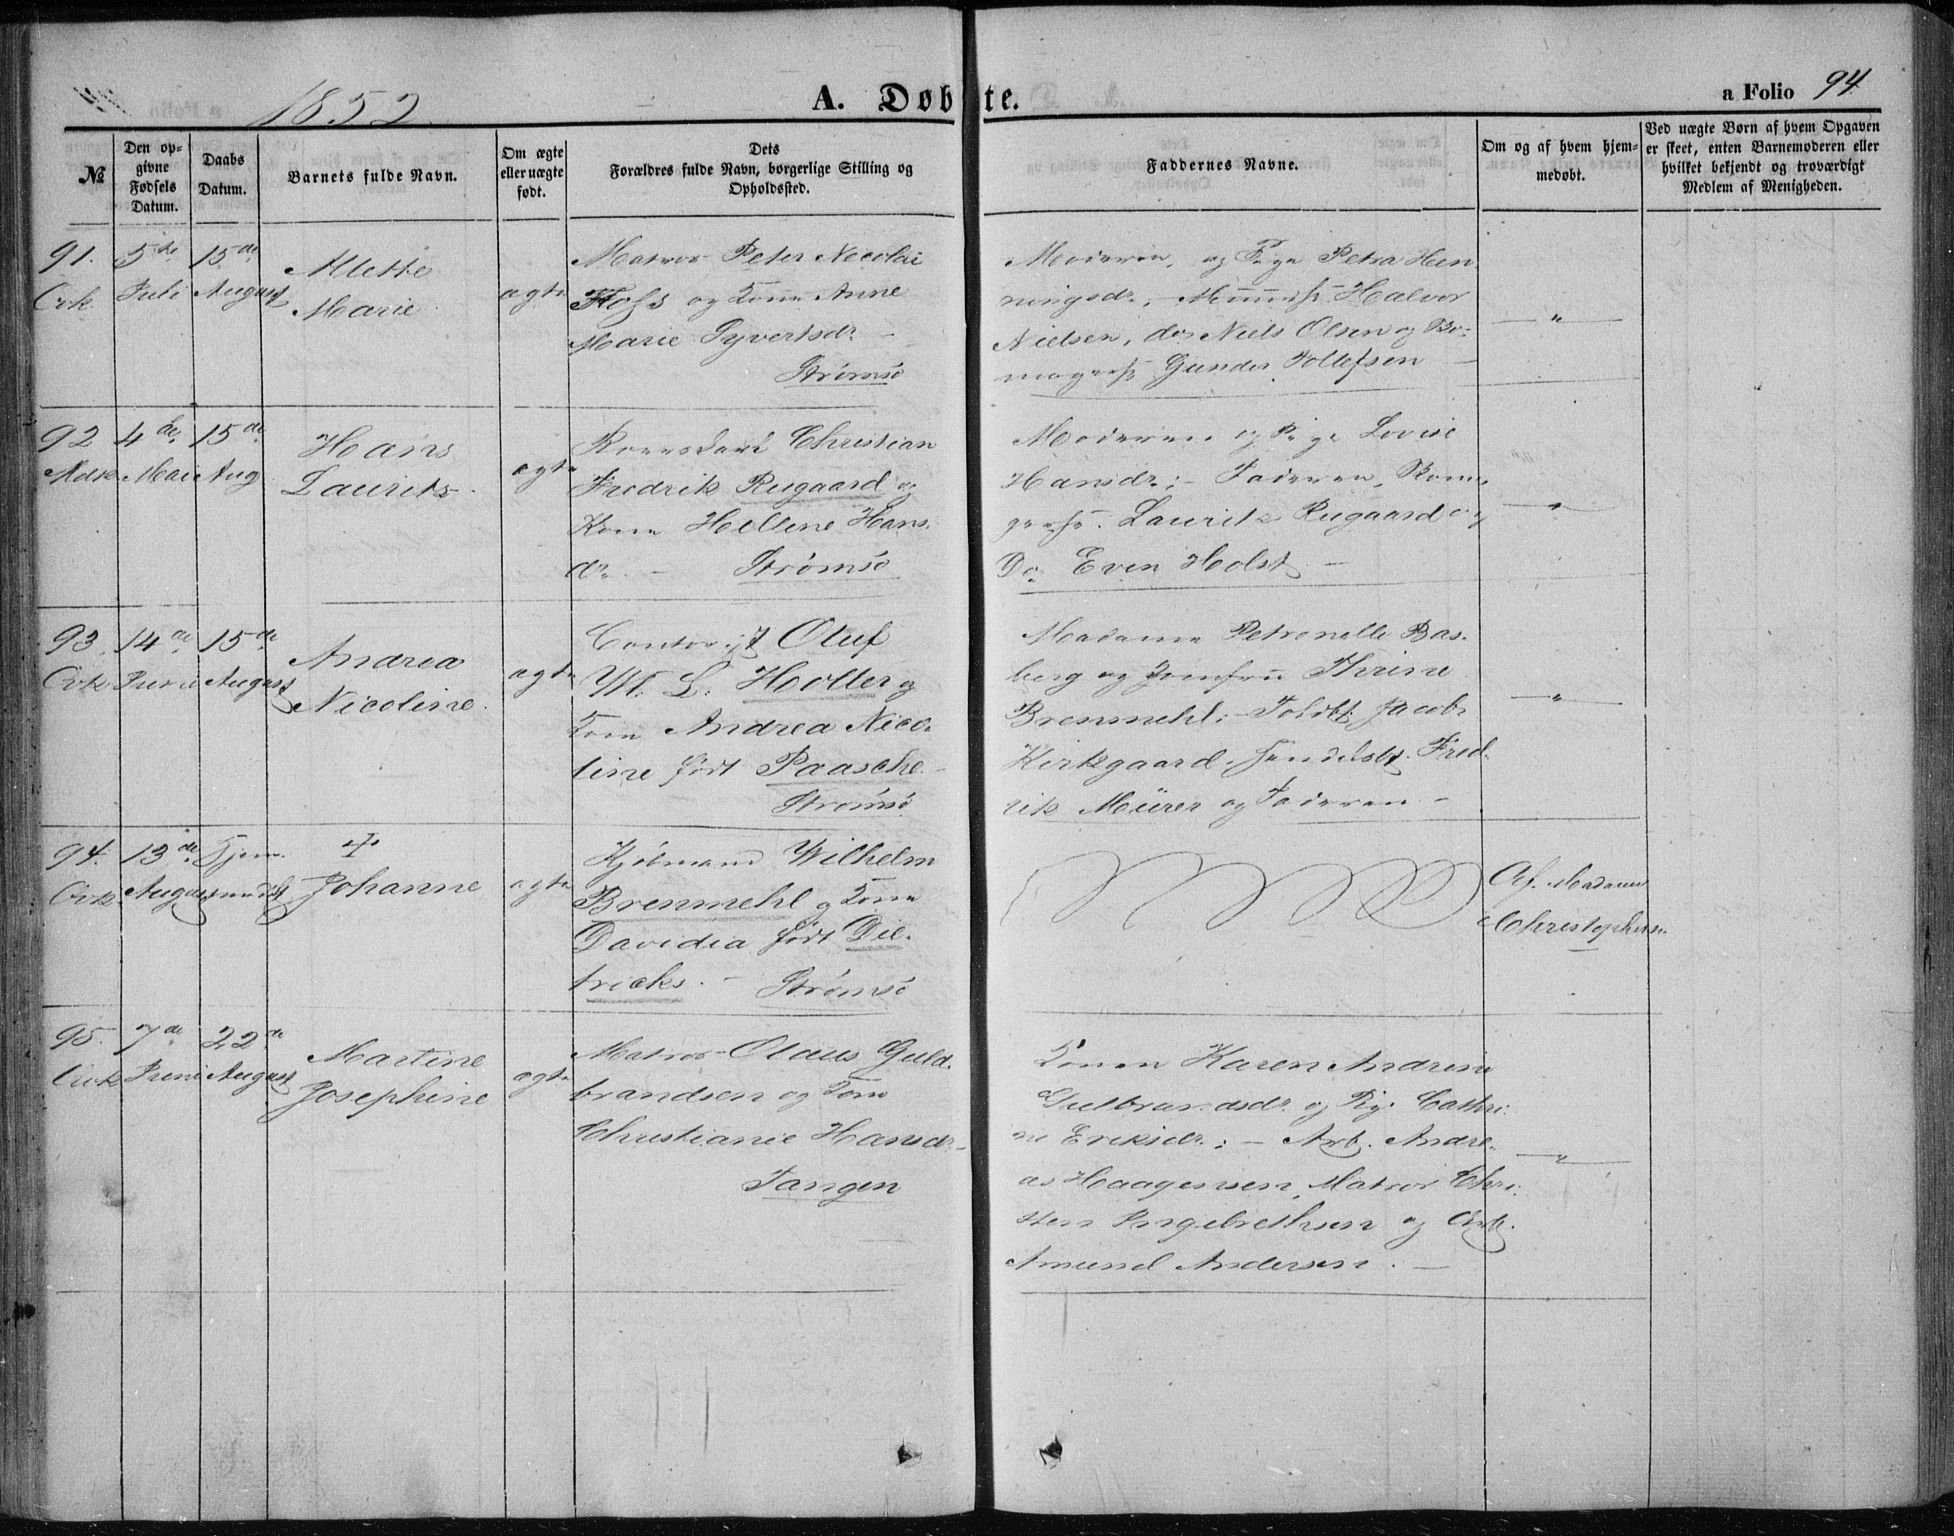 1852.
A. Døbte.
a Folio 94
№
Den op-
givne
Fødsels
Datum.
Daabs
Datum.
Barnets fulde Navn.
Om ægte
eller uægte
født.
Dets
Forældres fulde Navn, borgerlige Stilling og
Opholdssted.
Faddernes Navne.
Om og af hvem hjem-
medøbt.
Ved uægte Børn af hvem Opgaven
er skeet, enten Barnemoderen eller
hvilket bekjendt og troværdigt
Medlem af Menigheden.
91.
5te
Juli
15de
August
Marie
ægte
Matros Peter Nicolai
og Kone Anne
Marie Syvertsdr.
Strømsø
Moderen, og Pige Petra Hen-
ningsdr. Halvor
Nielsen, do Niels Olsen og
Gunder Tollefsen
"
92
4de
Mai
15de
Aug
Hans
Lauritz
ægte
Christian
Fredrik Rugaard og
Kone Hellene Hans-
dr. Strømsø
Moderen og Pige Lovise
Hansdr; Faderen,
Lauritz Rugaard og
Do Even Holst
"
93.
14de
Juni
15de
August
Andrea
Nicoline.
ægte
Contorist Oluf
M. L. Holter og
Kone Andrea Nico-
line født Paasche
Strømsø.
Madame Petronelle Bas-
berg og Jomfru Thrine
Brenmehl; Toldbt. Jacob
Kirkgaard, Handelsbt. Fred-
rik Mürer og Faderen
"
94.
13de
August
Hjem-
medøbt
Johanne
ægte
Kjøbmand Wilhelm
Brenmehl og Kone
Davidia født Die-
tricks. Strømsø
Af Madame
Christophersen
95.
7de
Juni
22de
August
Martine
Josephine
ægte
Matros Olaus Guld-
brandsen og Kone
Christianie Hansdr.
Tangen
Konen Karen Andrine
Gulbrandsdr og Pige Cathri-
ne Eriksdr; Arb. Andre-
as Haagensen, Matros Chri-
sten Engebrethsen og Arb.
Amund Andersen.
"